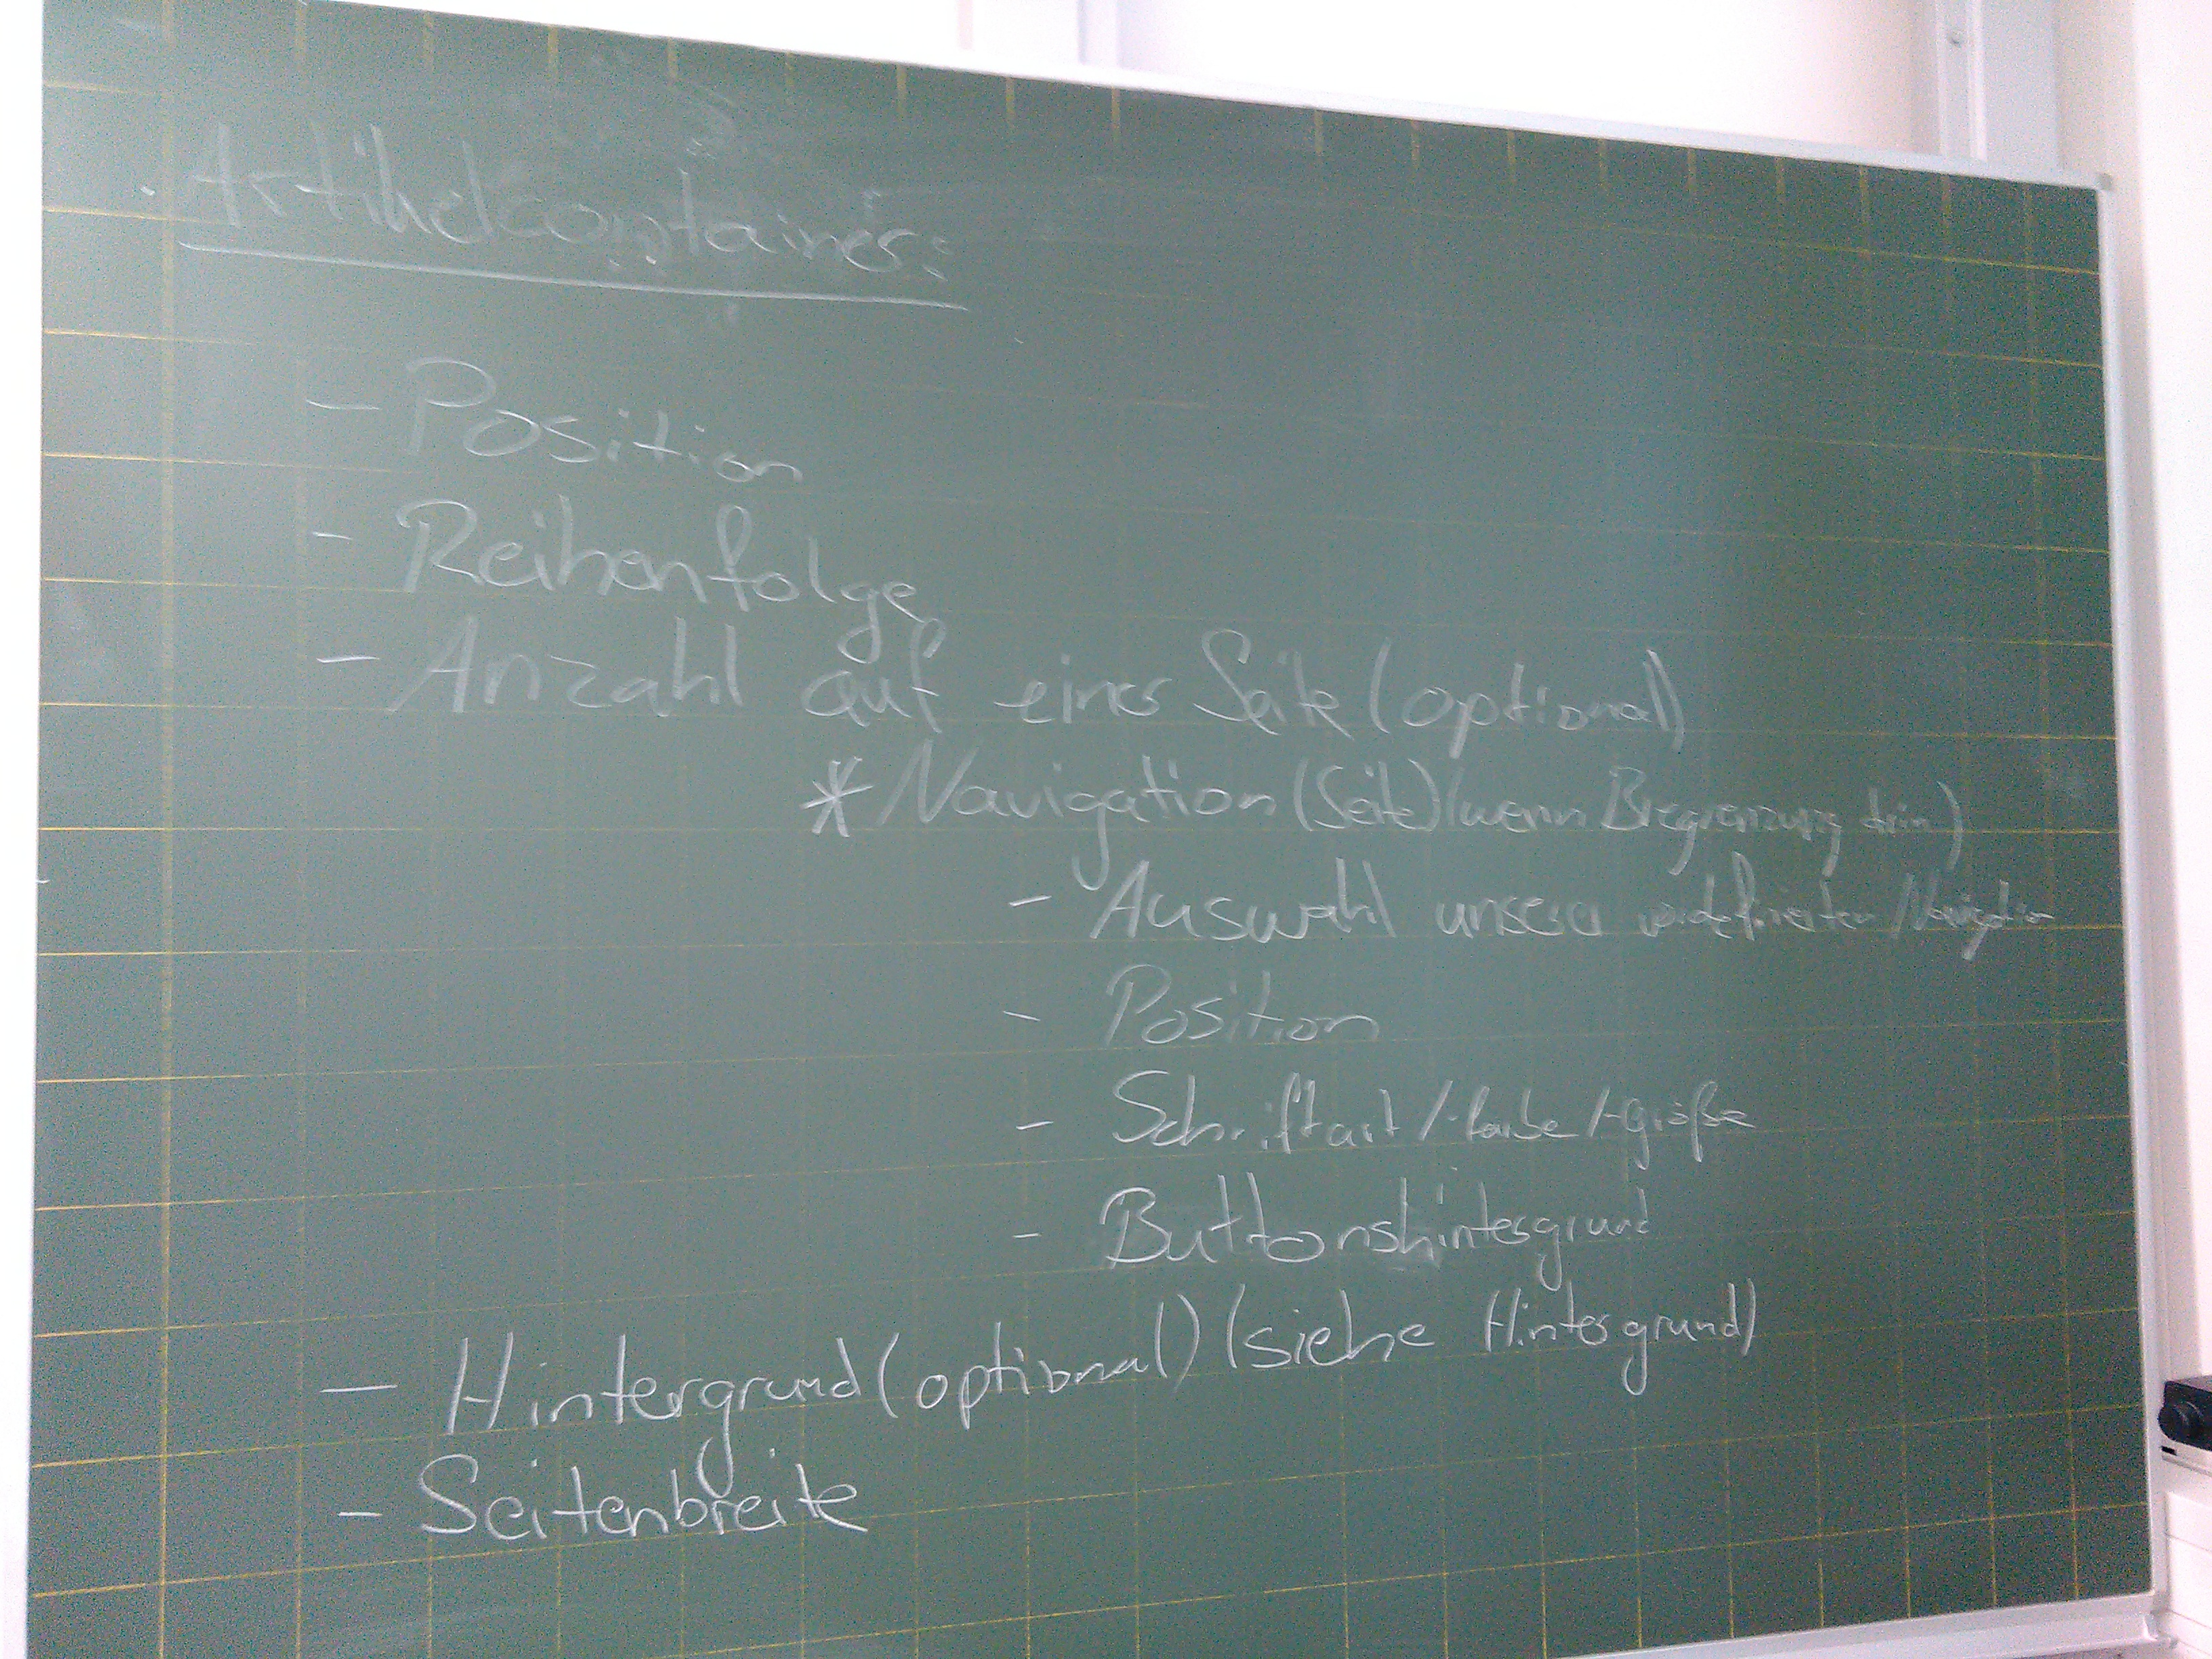 Artikelcontainer:
- Position
- Reihenfolge
- Anzahl auf einer Seite (optional)
* Navigation (Seite) (wenn Begrenzung drin)
- Auswahl unserer vordefinierten Navigation
- Position
- Schriftart / -farbe / -größe
- Buttonshintergrund
- Hintergrund (optional) (siehe Hintergrund)
- Seitenbreite